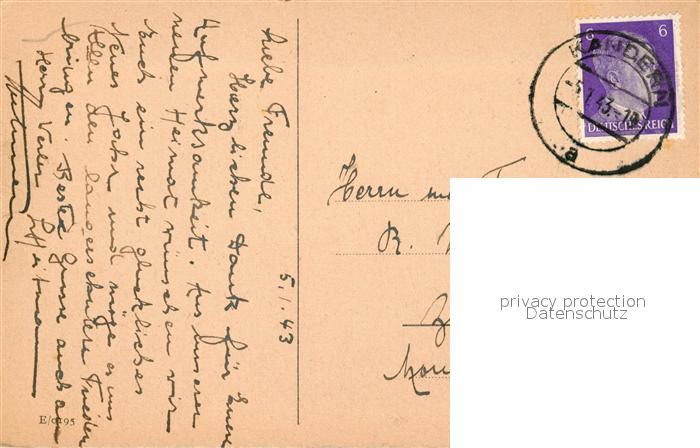 5.I.43
Liebe Freunde,
Herzlichen Dank für Eure
Aufmerksamkeit. Aus unserer
neuen Heimat wünschen wir
Euch ein recht glückliches
Neues Jahr und möge es uns
Allen den langersehnten Frieden
bringen. Beste Grüsse auch an
Herz
E/0195
6 6
DEUTSCHES REICH
KANDERN
-5.1.43.-18
a
Herrn
R.
privacy protection
Datenschutz